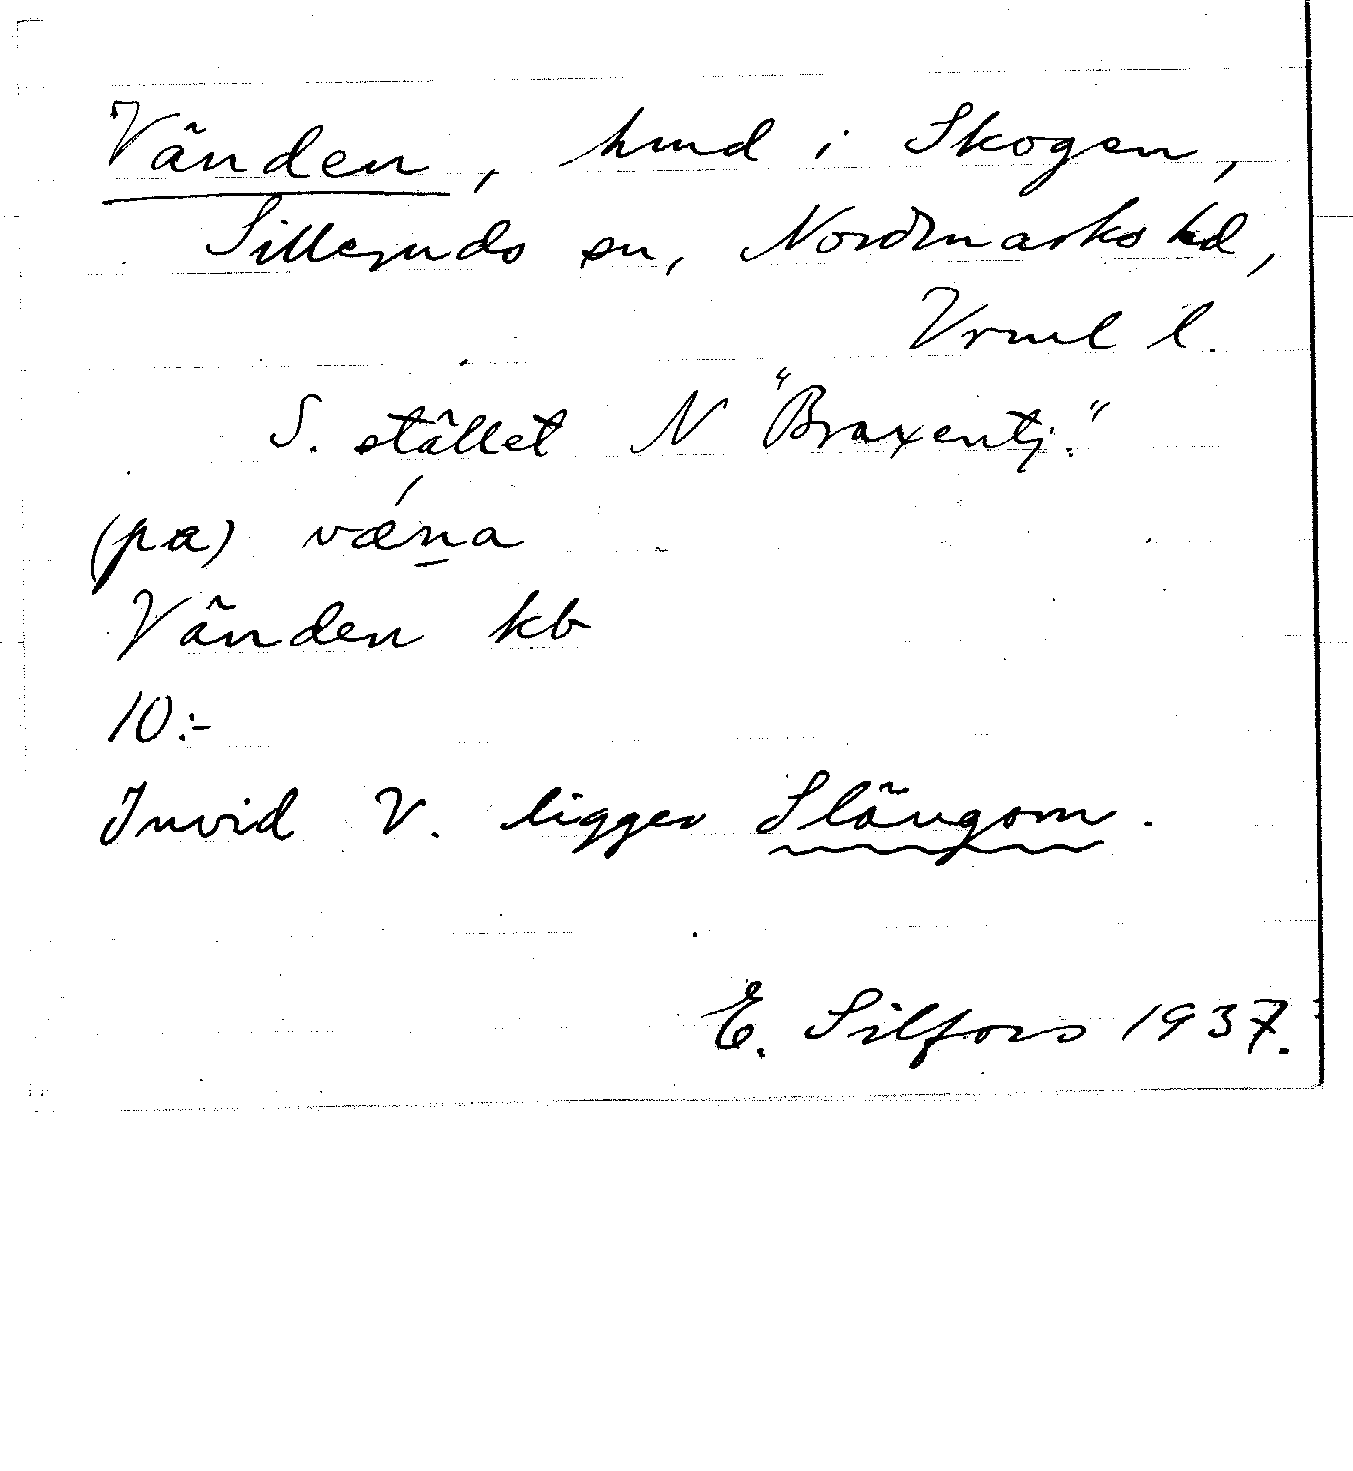 Vänden, hmd i Skogen,
Silleruds sn, Nordmarks hd,
Vrml l.
S. stället N "Braxentj."
(pa) væ´na
Vänden kb
10:-
Invid V. ligger Slängom.
E. Silfors 1937.